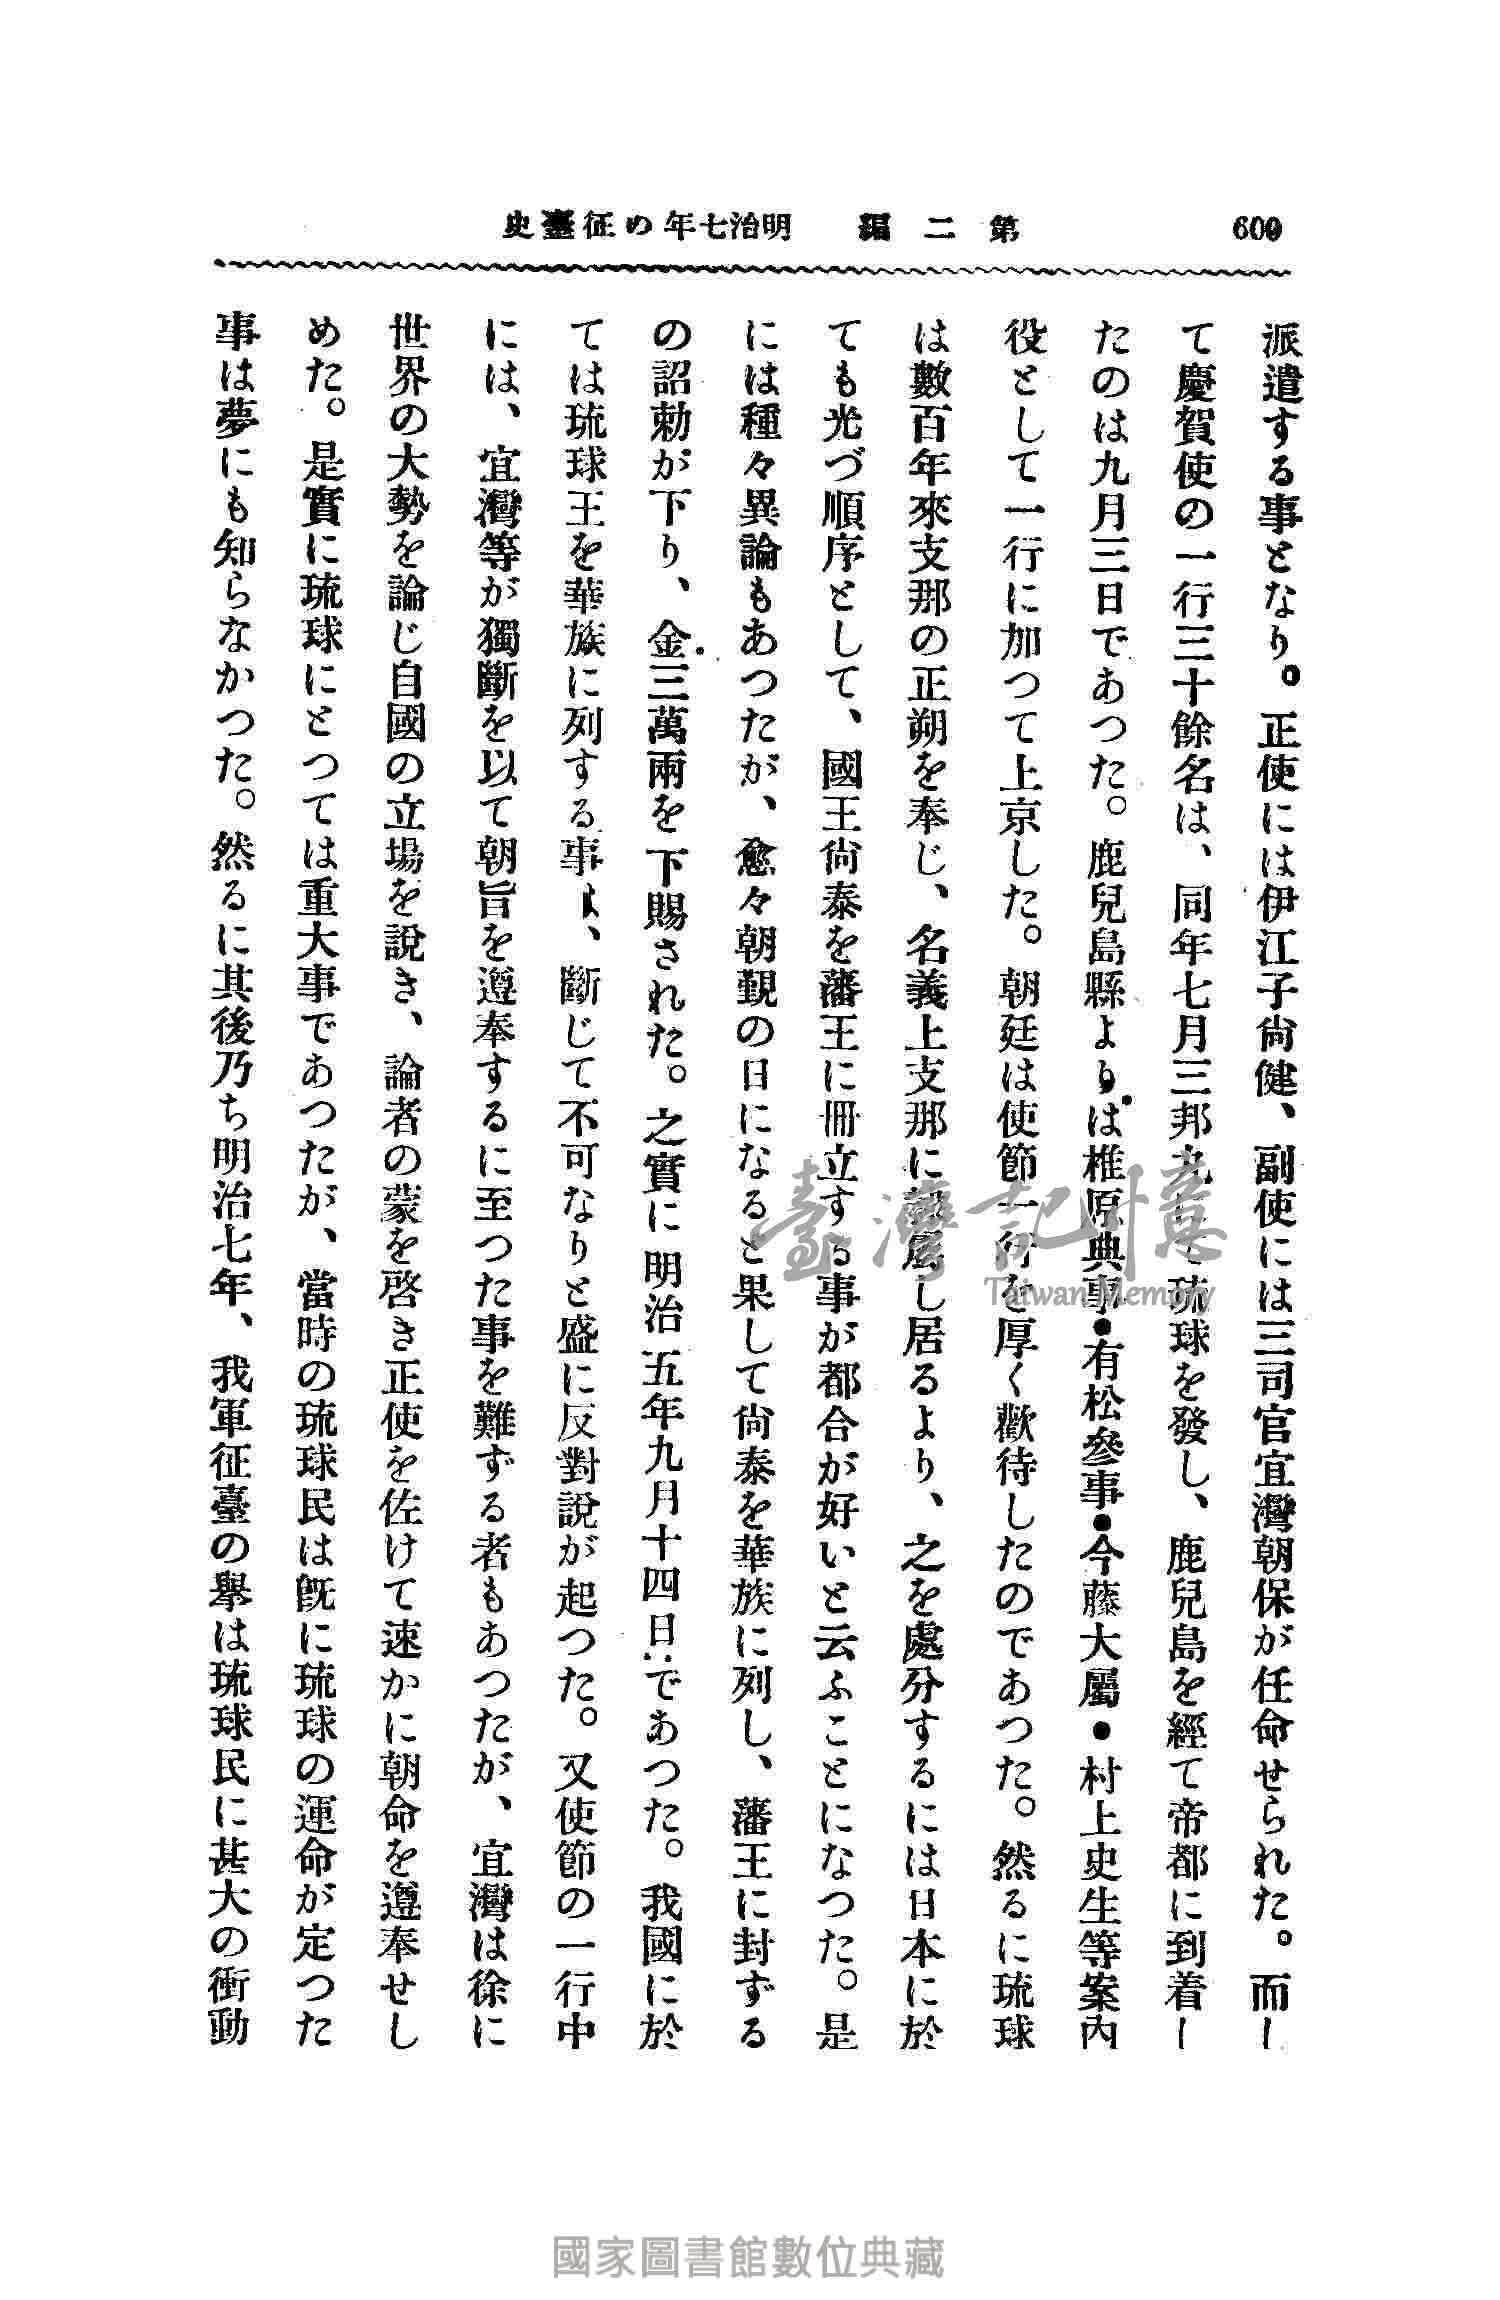 600
第二編 明治七年の征臺史
派遣する事となり。正使には伊江子尙健、副使には三司官宜灣朝保が任命せられた。而し
て慶賀使の一行三十餘名は、同年七月三邦丸にて琉球を發し、鹿兒島を經て帝都に到着し
たのは九月三日であつた。鹿兒島縣よりは椎原典事・有松參事・今藤大屬・村上史生等案內
役として一行に加つて上京した。朝廷は使節一行を厚く歡待したのであつた。然るに琉球
は數百年來支那の正朔を奉じ、名義上支那に屬し居るより、之を處分するには日本に於
ても光づ順序として、國王尙泰を藩王に冊立する事が都合が好いと云ふことになつた。是
には種々異論もあつたが、愈々朝覲の日になると果して尙泰を華族に列し、藩王に封ずる
の詔勅が下り、金三萬兩を下賜された。之實に明治五年九月十四日であつた。我國に於
ては琉球王を華族に列する事は、斷じて不可なりと盛に反對說が起つた。又使節の一行中
には、宜灣等が獨斷を以て朝旨を遵奉するに至つた事を難ずる者もあつたが、宜灣は徐に
世界の大勢を論じ自國の立場を說き、論者の蒙を啓き正使を佐けて速かに朝命を遵奉せし
めた。是實に琉球にとつては重大事であつたが、當時の琉球民は旣に琉球の運命が定つた
事は夢にも知らなかつた。然るに其後乃ち明治七年、我軍征臺の擧は琉球民に甚大の衝動
臺灣記憶
Taiwan Memory
國家圖書館數位典藏